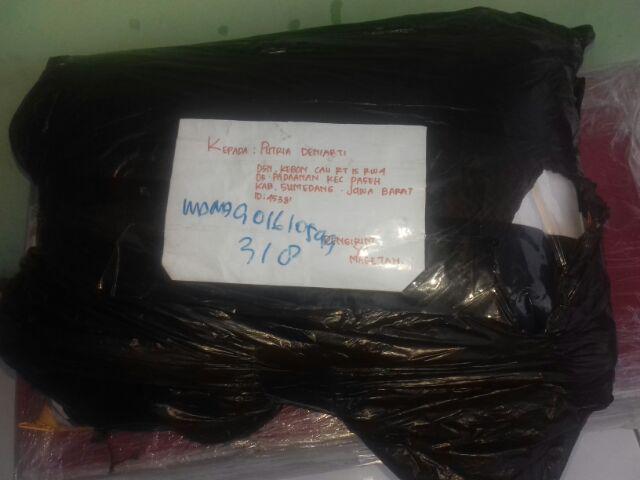 KEPADA : PUTRIA DENIARTI
DSN. KEBON CAU RT 15 RW 4
DS. PADAANAN KEC PASEH
KAB. SUMEDANG - JAWA BARAT
ID: 45381
318
PENGIRIM
MAGETAN